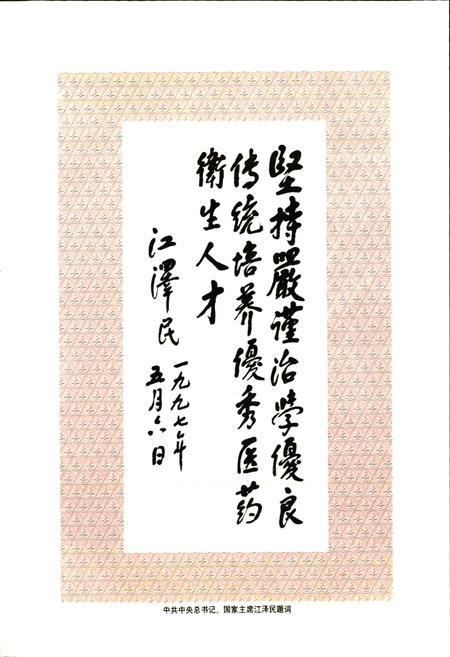 堅持嚴謹治學優良
传统培养優秀医药
衛生人才
江澤民
一九九七年
五月六日
中共中央总书记、国家主席江泽民题词